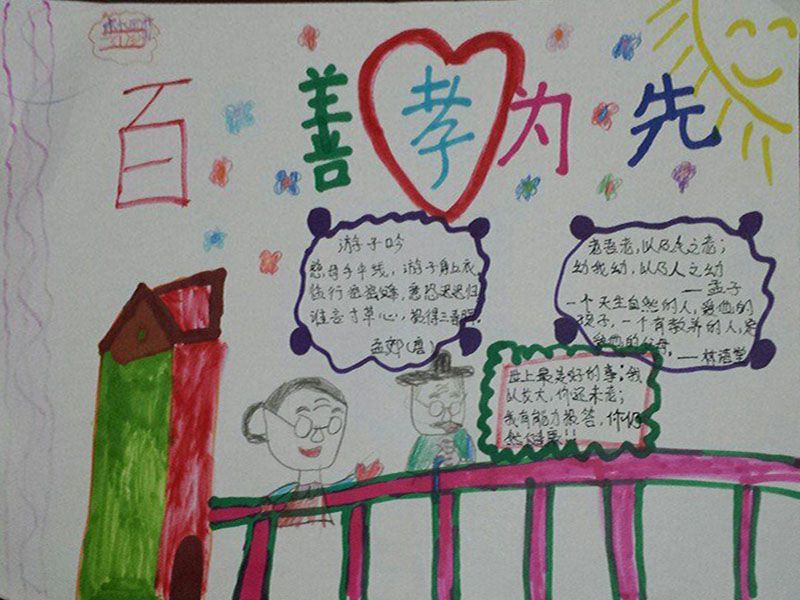 百善孝为先
游子吟
慈母手中线，游子身上衣
临行密密缝，意恐迟迟归
谁言寸草心，报得三春晖.
孟郊(唐)
老吾老，以及人之老；
幼我幼，以及人之幼
——孟子
一个天生自然的人，爱他的
孩子，一个有教养的人，定
爱他的父母.
——林语堂
世上最美好的事：我
以长大，你还未老；
我有能力报答，你仍
然健康!!